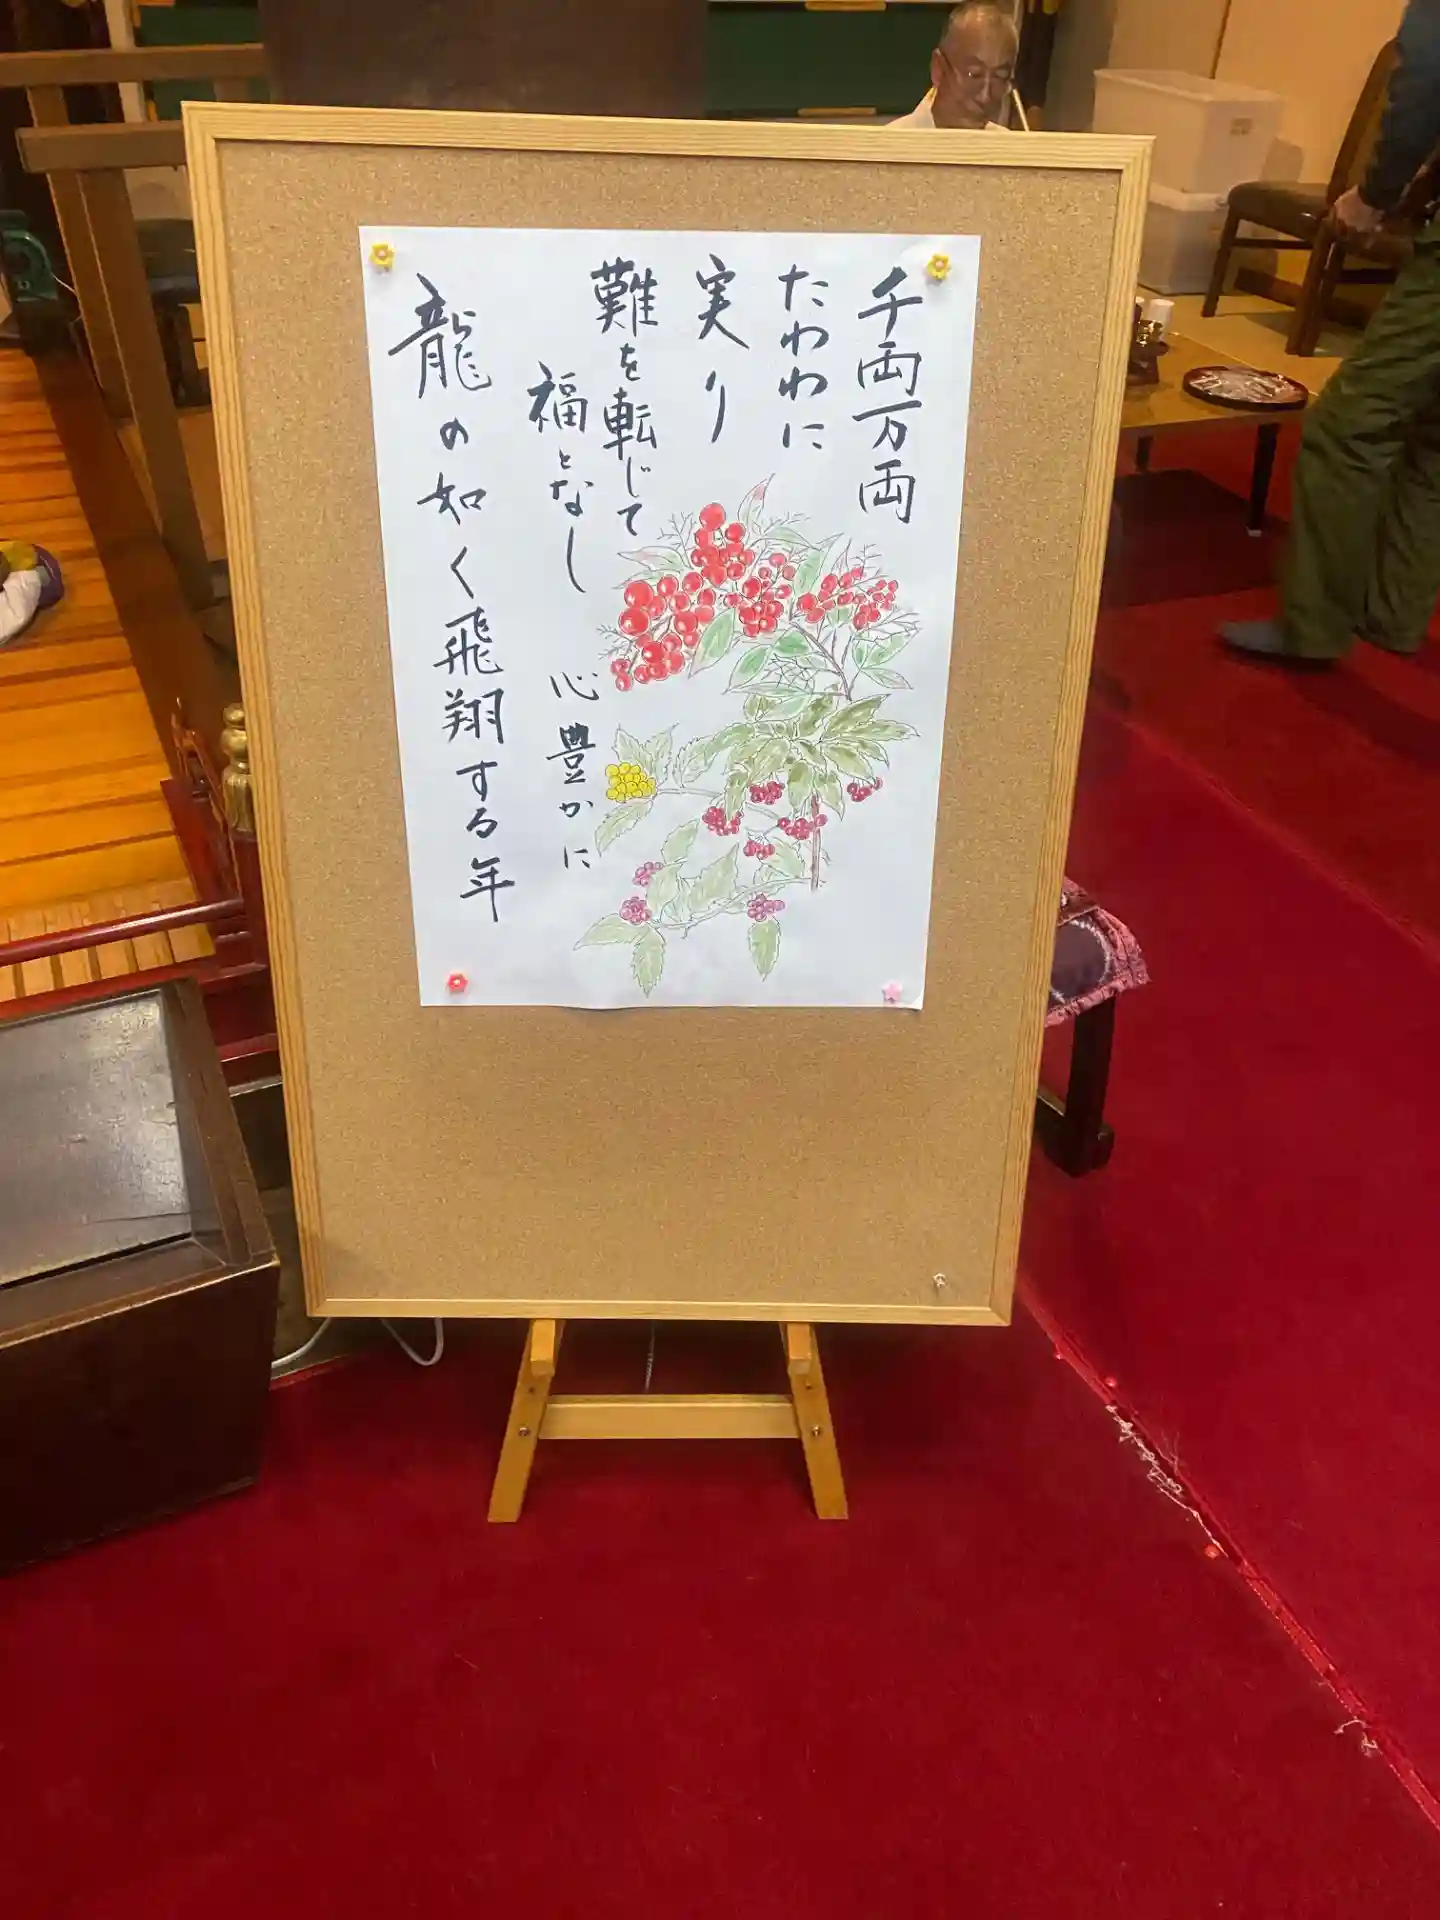 千両万両
たわわに
実り
難を転じて
福となし
心豊かに
龍の如く飛翔する年